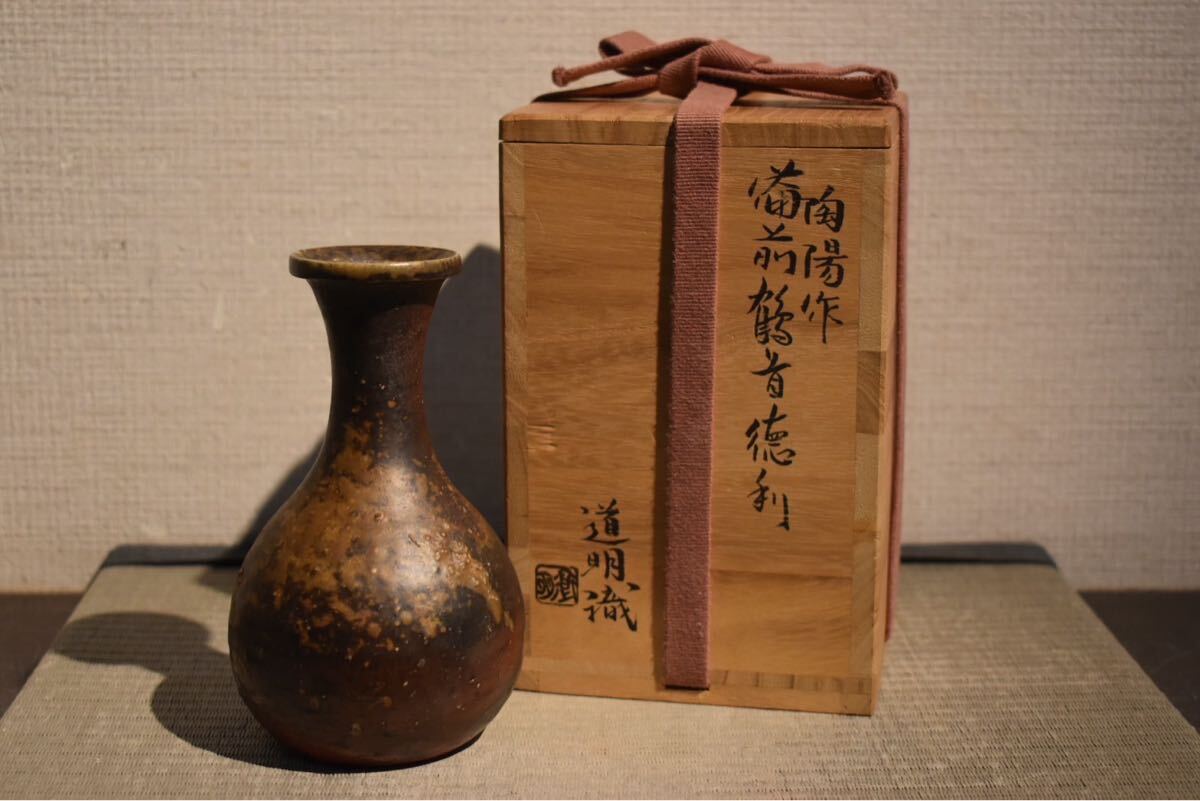 陶陽作
備前鶴首徳利
道明識